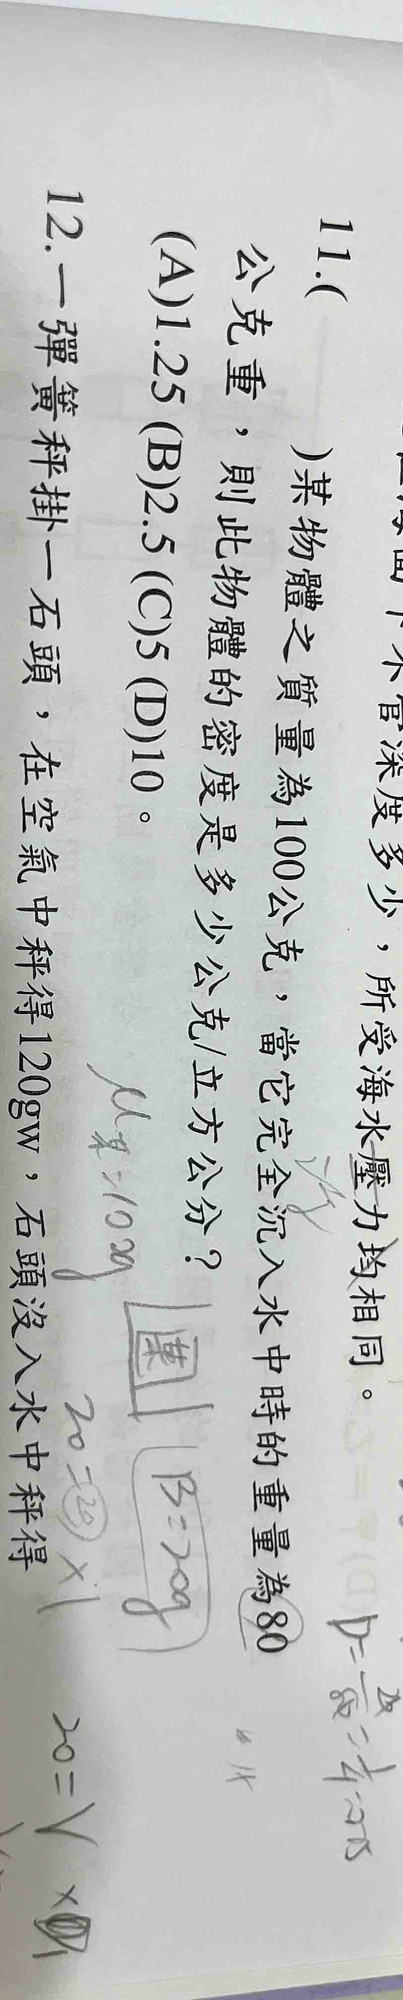 不管深度多少，所受海水壓力均相同。
11.(　　)某物體之質量為100公克，當它完全沉入水中時的重量為80
公克重，則此物體的密度是多少公克/立方公分？
(A)1.25 (B)2.5 (C)5 (D)10。
B=20g
20=20×1
20=V×
12.一彈簧秤掛一石頭，在空氣中秤得120gw，石頭沒入水中秤得